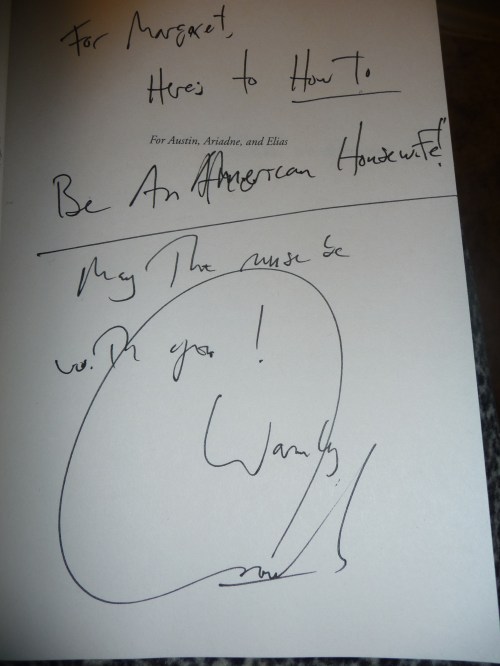 For Margaret,
Here's to How To
For Austin, Ariadne, and Elias
Be An American Housewife!"
May The muse be
with you!
Warmly